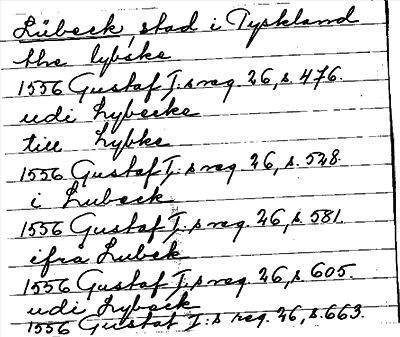 Lübeck, stad i Tyskland
the lybske
1556 Gustaf I:s reg. 26, s. 476.
udi Lybecke
till Lybke
1556 Gustaf I:s reg. 26, s. 528.
i Lubeck
1556 Gustaf I:s reg. 26, s. 581.
ifrå Lubek
1556 Gustaf I:s reg. 26, s. 605.
udi Lybeck
1556 Gustaf I:s reg. 26, s. 663.